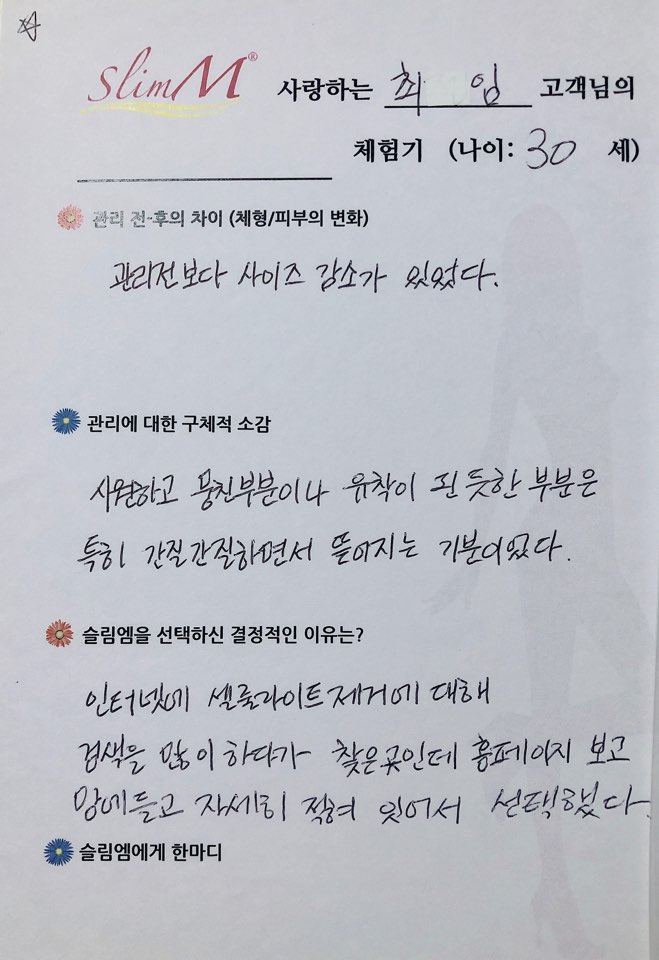 SlimM®
사랑하는 최 임 고객님의
체험기 (나이: 30 세)
관리 전·후의 차이 (체형/피부의 변화)
관리전보다 사이즈 감소가 있었다.
관리에 대한 구체적 소감
시원하고 뭉친부분이나 유착이 된 듯한 부분은
특히 간질간질하면서 뜯어지는 기분이었다.
슬림엠을 선택하신 결정적인 이유는?
인터넷에 셀룰라이트제거에 대해
검색을 많이 하다가 찾은곳인데 홈페이지 보고
맘에들고 자세히 적혀 있어서 선택했다.
슬림엠에게 한마디